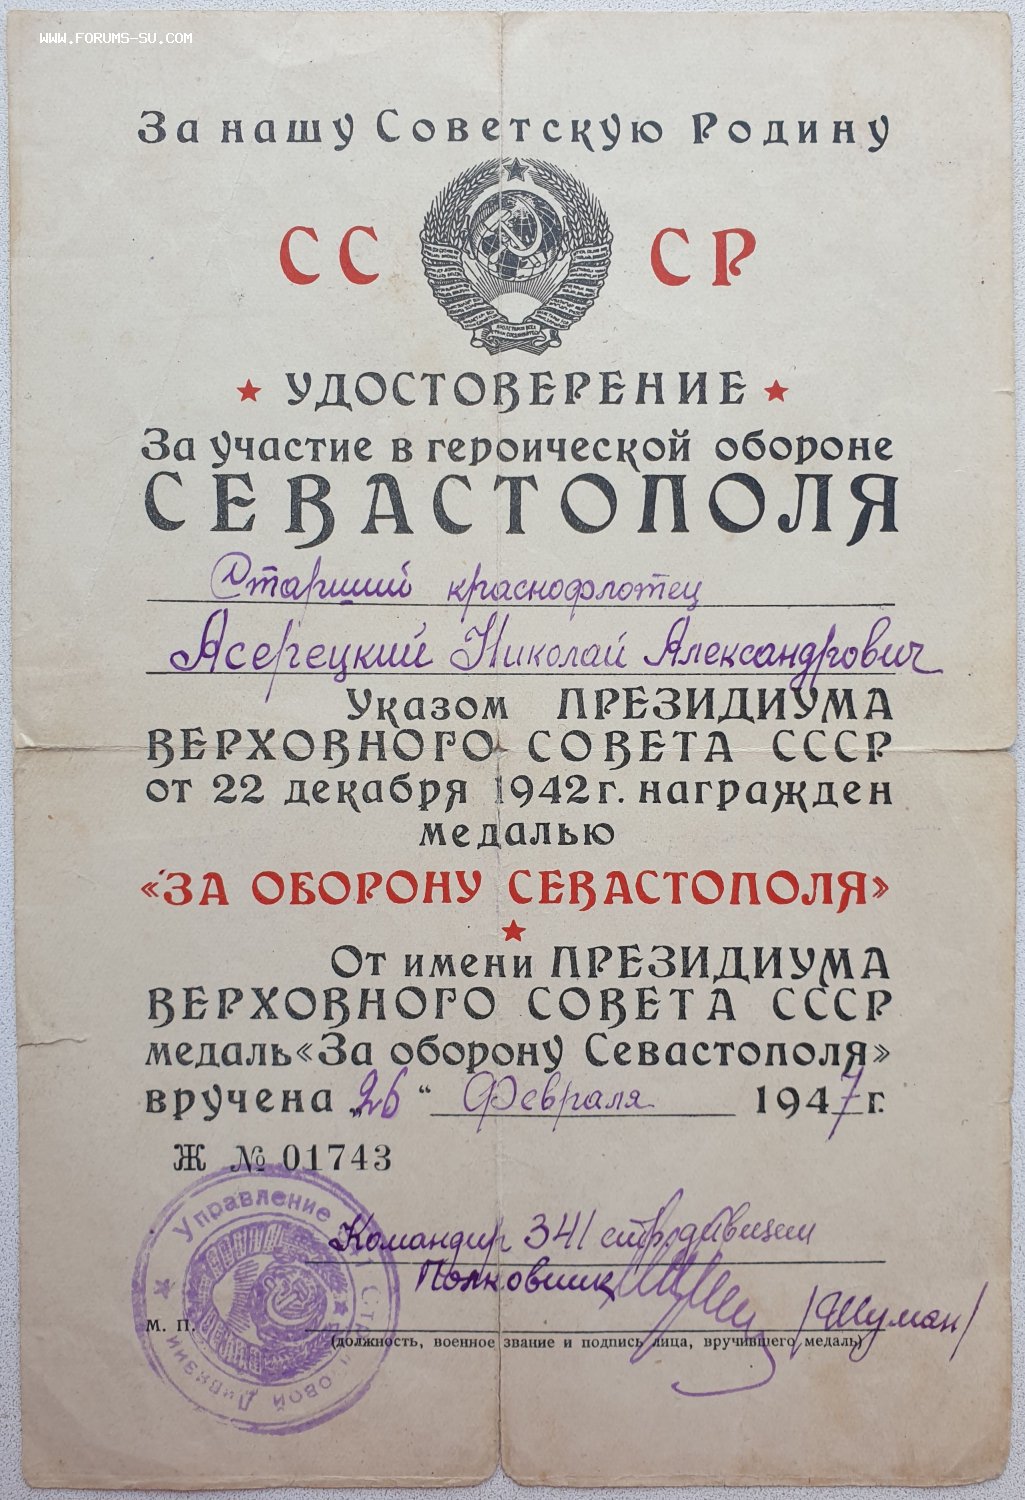 WWW.FORUMS-SU.COM
За нашу Советскую Родину
СССР
УДОСТОВЕРЕНИЕ
За участие в героической обороне
СЕВАСТОПОЛЯ
Старший краснофлотец
Асерецкий Николай Александрович
Указом ПРЕЗИДИУМА
ВЕРХОВНОГО СОВЕТА СССР
от 22 декабря 1942 г. награжден
медалью
«ЗА ОБОРОНУ СЕВАСТОПОЛЯ»
От имени ПРЕЗИДИУМА
ВЕРХОВНОГО СОВЕТА СССР
медаль «За оборону Севастополя»
вручена „26“ Февраля 1947 г.
Ж № 01743
Управление Дивизии
Командир 341 стр.дивизии
Полковник
/Шуман/
м. п.
(должность, военное звание и подпись лица, вручившего медаль)